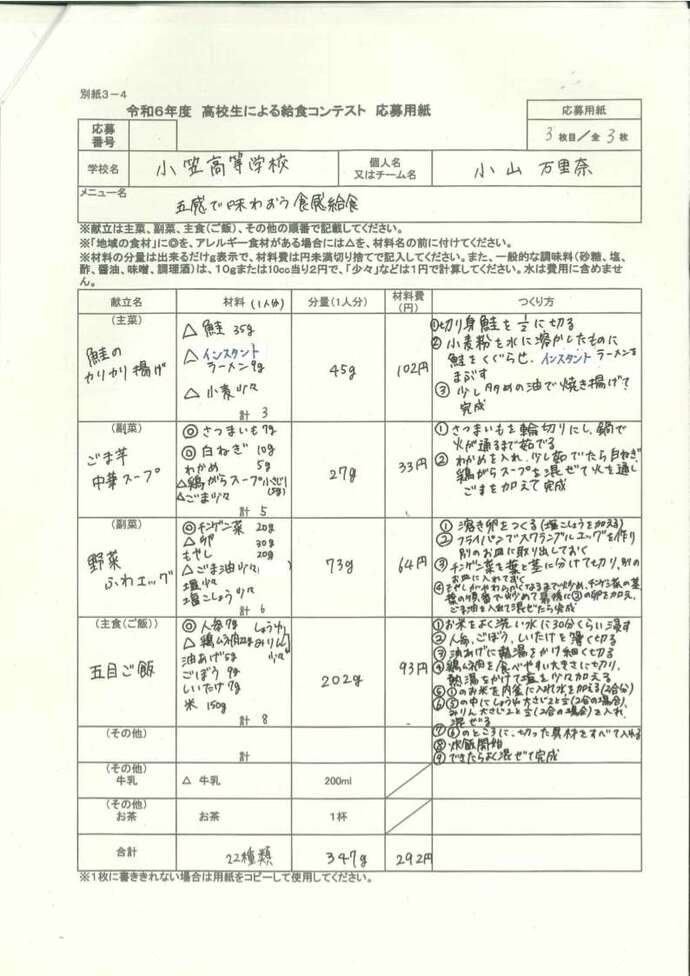 別紙3－4
令和6年度 高校生による給食コンテスト 応募用紙
応募用紙
3枚目／全3枚
応募番号
学校名 小笠高等学校 個人名又はチーム名 小山 万里奈
メニュー名
五感で味わおう食感給食
※献立は主菜、副菜、主食(ご飯)、その他の順番で記載してください。
※「地域の食材」に◎を、アレルギー食材がある場合には△を、材料名の前に付けてください。
※材料の分量は出来るだけg表示で、材料費は円未満切り捨てで記入してください。また、一般的な調味料(砂糖、塩、
酢、醤油、味噌、調理酒)は、10gまたは10cc当り2円で、「少々」などは1円で計算してください。水は費用に含めませ
ん。
献立名 材料(1人分) 分量(1人分) 材料費(円) つくり方
(主菜)
鮭の
カリカリ揚げ
△ 鮭 35g
△ インスタント
ラーメン9g
△ 小麦少々
計 3
45g
102円
①切り身鮭を1/2に切る
② 小麦粉を水に溶かしたものに
鮭をくぐらせ、インスタントラーメンを
まぶす
③ 少し多めの油で焼き揚げて
完成
(副菜)
ごま芋
中華スープ
◎ さつまいも7g
◎ 白ねぎ 10g
わかめ 5g
△鶏がらスープ小さじ1
(5g)
△ごま少々
計 5
27g
33円
① さつまいもを輪切りにし、鍋で
火が通るまで茹でる
② わかめを入れ、少し茹でたら白ねぎ、
鶏がらスープを混ぜて火を通し
ごまを加えて完成
(副菜)
野菜
ふわエッグ
◎チンゲン菜 20g
△ 卵 30g
もやし 20g
△ごま油少々
塩少々
塩こしょう少々
計 6
73g
64円
① 溶き卵をつくる(塩こしょうを加える)
② フライパンでスクランブルエッグを作り
別のお皿に取り出しておく
③ チンゲン菜を葉と茎に分けて切り、別の
お皿に入れておく
④もやしがやわらかくなるまで炒め、チンゲン菜の茎
葉の順番で炒めて最後に②の卵を加え、
ごま油を入れて混ぜたら完成
(主食(ご飯))
五目ご飯
◎ 人参7g しょうゆ
△ 鶏ムネ肉22g みりん
油あげ5g 少々
ごぼう 9g
しいたけ 7g
米 150g
計 8
202g
93円
①お米をよく洗い水に30分くらい浸す
② 人参、ごぼう、しいたけを薄く切る
③ 油あげに熱湯をかけ細く切る
④ 鶏ムネ肉を食べやすい大きさに切り、
熱湯をかけて塩を少々加える
⑤ ①のお米を内釜に入れ水を加える(2合分)
⑥ ⑤の中にしょうゆ大さじ2と1/2(2合の場合)、
みりん大さじ2と1/2(2合の場合)を入れ、
混ぜる
⑦ ⑥のところに、切った具材をすべて入れる
⑧ 炊飯開始
⑨ できたらよく混ぜて完成
(その他)
計
(その他)
牛乳 △ 牛乳 200ml
(その他)
お茶 お茶 1杯
合計 22種類 347g 292円
※1枚に書ききれない場合は用紙をコピーして使用してください。